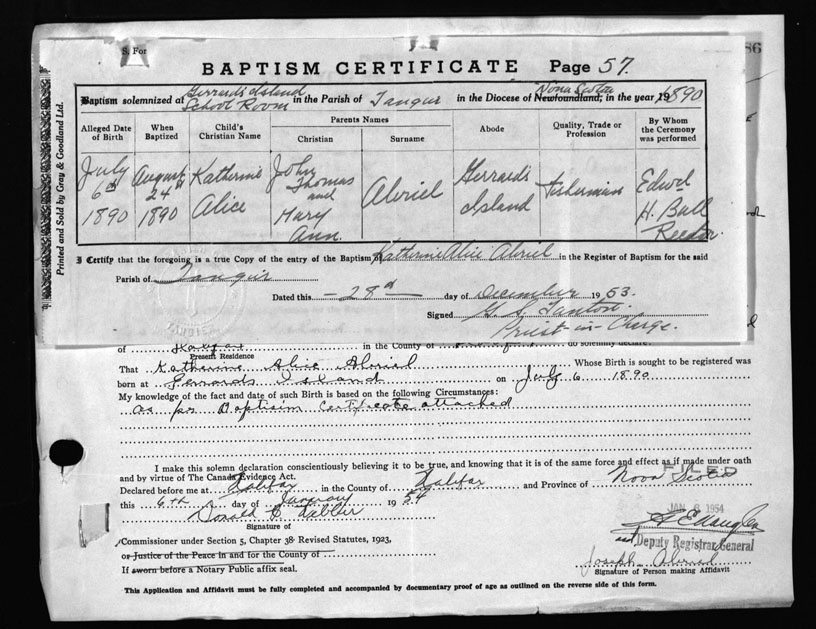 S. For
86
BAPTISM CERTIFICATE Page 57.
Baptism solemnized at Gerrard's Island School Room in the Parish of Tangier in the Diocese of Newfoundland, Nova Scotia in the year 1890
Alleged Date of Birth
When Baptized
Child's Christian Name
Parents Names
Christian
Surname
Abode
Quality, Trade or Profession
By Whom the Ceremony was performed
July 6th 1890
August 24th 1890
Katherine Alice
John Thomas and Mary Ann.
Abriel
Gerrard's Island
fisherman
Edwd H. Ball Rector.
I Certify that the foregoing is a true Copy of the entry of the Baptism Katherine Alice Abriel in the Register of Baptism for the said
Parish of Tangier
Dated this —28th day of December 1953.
Signed
Priest-in-Charge.
Printed and Sold by Gray & Goodland Ltd.
of Halifax in the County of do solemnly declare:
Present Residence
That Katherine Alice Abriel Whose Birth is sought to be registered was
born at Gerrards Island on July 6 1890
My knowledge of the fact and date of such Birth is based on the following Circumstances:
as per Baptisim Certificate attached
I make this solemn declaration conscientiously believing it to be true, and knowing that it is of the same force and effect as if made under oath
and by virtue of The Canada Evidence Act.
FILED
Declared before me at Halifax in the County of Halifax and Province of Nova Scotia
this 6th day of January 1954
JAN 8 1954
Signature of
Commissioner under Section 5, Chapter 38 Revised Statutes, 1923,
and Deputy Registrar General
or Justice of the Peace in and for the County of
Joseph Abriel
Signature of Person making Affidavit
If sworn before a Notary Public affix seal.
This Application and Affidavit must be fully completed and accompanied by documentary proof of age as outlined on the reverse side of this form.